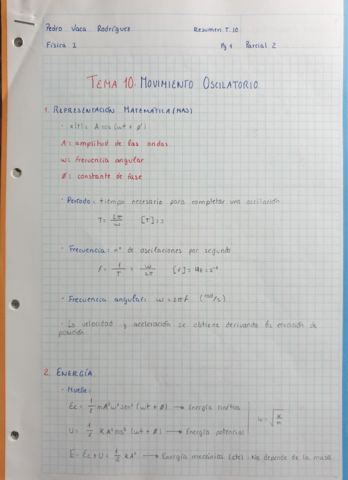 Pedro Vaca Rodríguez Resumen T.10
Física 1 Pg 1 Parcial 2
TEMA 10: MOVIMIENTO OSCILATORIO
1. REPRESENTACIÓN MATEMÁTICA (MAS)
· x(t) = A cos (ωt + ø)
A = amplitud de las ondas
ω = frecuencia angular
Ø = constante de fase
· Periodo: tiempo necesario para completar una oscilación
T = 2π/ω [T] = s
· Frecuencia: nº de oscilaciones por segundo
f = 1/T = ω/2π [f] = Hz = s⁻¹
· Frecuencia angular: ω = 2πf (rad/s)
· La velocidad y aceleración se obtiene derivando la ecuación de
posición
2. ENERGÍA
· Muelle:
Ec = 1/2 mA²ω² sen² (ωt + Ø) → Energía cinética
ω = √K/m
U = 1/2 KA² cos² (ωt + Ø) → Energía potencial
E = Ec + U = 1/2 KA² → Energía mecánica (cte). No depende de la masa